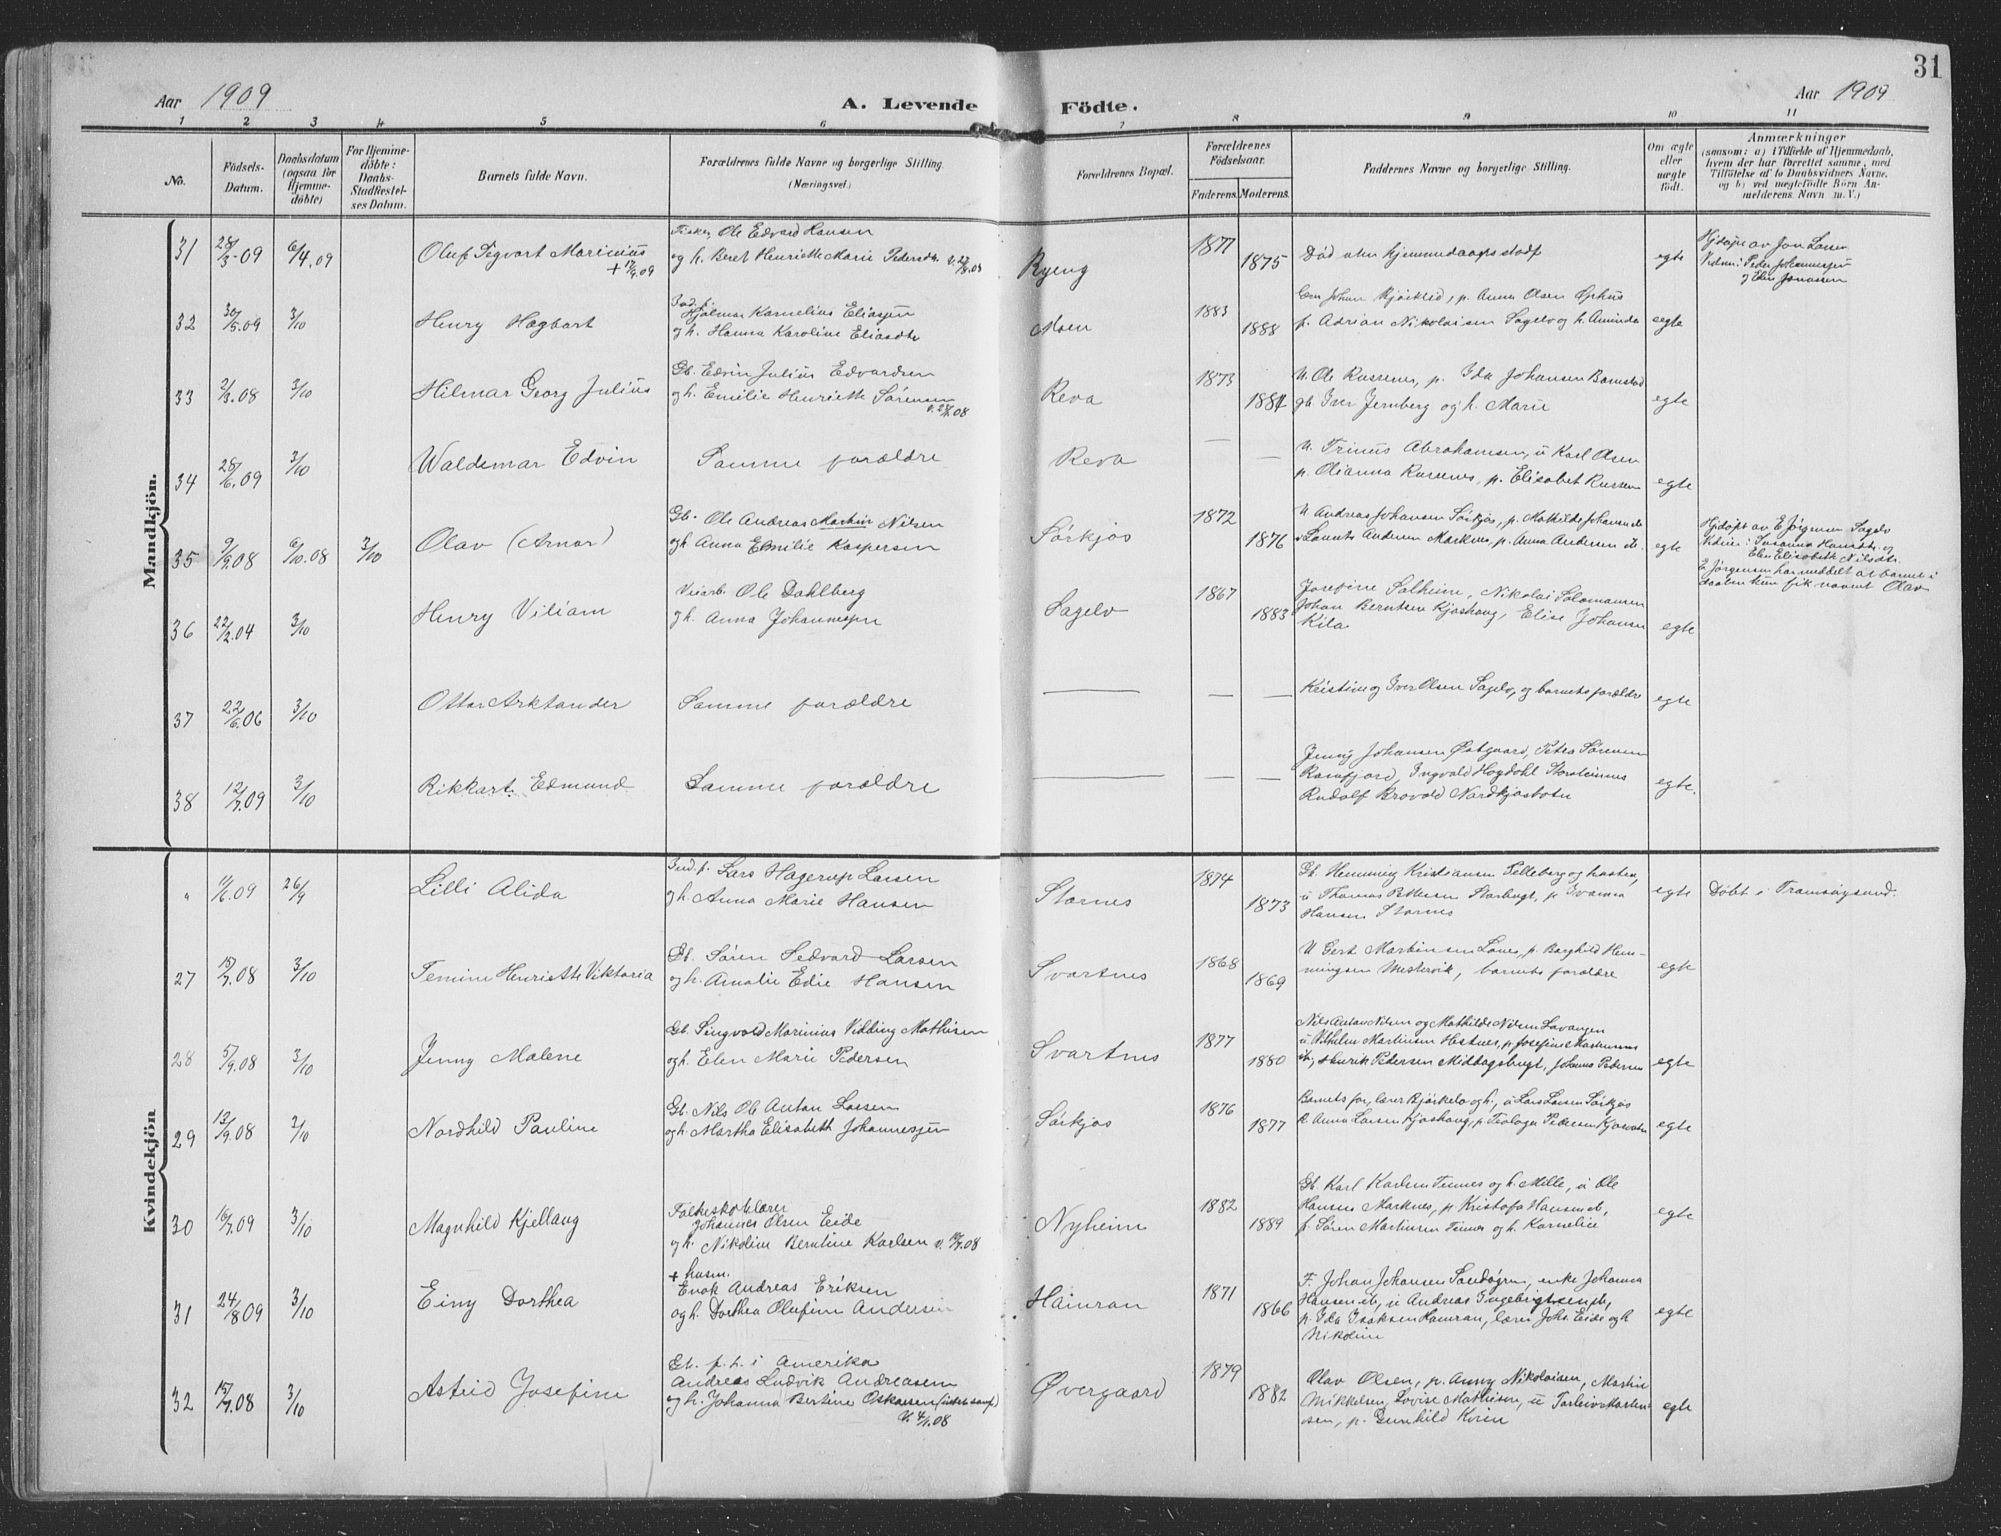 31
Aar 1909
A. Levende Födte.
Aar 1909
1 2 3 4 5 6 7 8 9 10 11
No.
Födsels-
Datum.
Daabsdatum
(ogsaa for
Hjemme-
døbte)
For Hjemme-
døbte:
Daabs-
Stadfæstel-
ses Datum.
Barnets fulde Navn.
Forældrenes fulde Navne og borgerlige Stilling.
(Næringsvei.)
Forældrenes Bopæl.
Forældrenes
Födselsaar.
Faderens. Moderens.
Faddernes Navne og borgerlige Stilling.
Om ægte
eller
uægte
födt.
Anmærkninger
(saasom: a) i Tilfælde af Hjemmedaab,
hvem der har forrettet samme, med
Tilföielse af to Daabsvidners Navne,
og b) ved uægtefödte Börn An-
melderens Navn m. V.)
Mandkjön.
31 28/3-09 6/4.09
Oluf Sigvart Marinius
+ 17/4.09
Fisker Ole Edvard Hansen
og h. Beret Henriette Marie Pedersdtr
Ryeng
1877 1875
Död uten hjemmedaapsstadf
egte
Hjdøpt av Jon Larsen
Vidner: Peder Johannessen
og Elen Jonassen
32 30/5.09 3/10
Henry Hagbart
Ind. f.
Hjalmar Kornelius Eliassen
og h. Hanna Karoline Eliasdtr
Moen
1883 1888
Johan Bjørklid, p. Anna Olsen Ophus
f. Adrian Nikolaisen Sagelv og h. Aminda
egte
33 2/3.08 3/10
Hilmar Georg Julius
Gb. Edvin Julius Edvardsen
og h. Emilie Henriette Sørensen
Reva
1873 1884
U. Ole Russenes, p. Ida Johansen Bomstad
gb. Iver Jernberg og h. Marie
egte
34 28/6.09 3/10
Waldemar Edvin
Samme forældre
Reva
— —
U. Trinus Abrahamsen, u Karl Olsen
p. Olianna Russenes, p. Elisabet Russenes
egte
35 9/7.08 6/10.08 3/10
Olav (Arnar)
Gb. Ole Andreas Martin Nilsen
og h. Anna Emilie Kaspersen
Sørkjos
1872 1876
U Andreas Johansen Sørkjos, p. Mathilde Johansen
Laurits Andersen Marknes, p. Anna Andersen
egte
Hjdøpt av E Jørgensen Sagelv
Vidner: Susanna Hansdtr. og
Elen Elisabeth Nilsdtr.
E Jørgensen har meddelt at barnet i
daaben kun fik navnet Olav
36 22/2.04 3/10
Henry Viliam
Veiarb. Ole Dahlberg
og h. Anna Johannessen
Sagelv
1867 1883
Josefine Solheim, Nikolai Solomonsen
Johan Berntsen Kjoshaug, Elise Johansen
Kila
egte
37 22/6.06 3/10
Ottar Arktander
Samme forældre
— — —
Kristine og Iver Olsen Sagelv, og barnets forældre
egte
38 12/7.09 3/10
Rikkart Edmund
Samme forældre
— — —
Jenny Johansen Østgaard, Petra Sørensen
Ramfjord, Ingvald Hogdahl Storsteinnes
Rudolf Brovold Nordkjosbotn
egte.
Kvindekjön
" 11/6.09 26/9
Lilli Alida
Ind. f. Lars Hagerup Larsen
og h. Anna Marie Hansen
Stornes
1874 1873
Gb. Hemming Kristiansen Pilleberg og hustru,
u Thomas Pettersen Storbugt, p Ivanna
Hansen Stornes
egte
Døbt i Tromsøysund.
27 18/7.08 3/10
Temine Henriette Viktoria
Gb. Søren Sedvard Larsen
og h. Amalie Edie Hansen
Svartnes
1868 1869
U Gert Martinsen Lanes, p. Borghild Hem-
mingsen Mestervik, barnets forældre
egte
28 5/9.08 3/10
Jenny Malene
Gb. Singvald Marinius Vidding Mathisen
og h. Elen Marie Pedersen
Svartnes
1877 1880
Nils Anton Nilsen og Mathilde Nilsen Lavangen
u Vilhelm Martinsen Hestnes, p. Josefine
Henrik Pedersen Middagsbugt, Johanna Pedersen
egte
29 13/9.08 3/10
Nordhild Pauline
Gb. Nils Ol Anton Larsen
og h. Martha Elisabeth Johannessen
Sørkjos
1876 1877
Barnets far, lærer Bjørkelo og h., u Lars Larsen Sørkjos
Anna Larsen Kjoshaug, p. Teologa Pedersen
egte
30 16/7.09 3/10
Magnhild Kjellaug
Folkeskolelærer
Johannes Olsen Eide
og h. Nikoline Berntine Karlsen
Nyheim
1882 1889
Gb. Karl Karlsen Tennes og h. Mille, u Ole
Hansen Marknes, p Kristofa Hansen
f. Søren Martinsen Tennes og h. Kornelie
egte
31 24/8 09 3/10
Einy Dorthea
+ husm.
Enok Andreas Eriksen
og h. Dorthea Olufine Andersen
Hamran
1871 1866
F. Johan Johansen Sandøgren, enke Johanna
Hansen, u Andreas Ingebrigtsen
p. Ida Isaksen Hamran, lærer Johs. Eide og h
Nikoline
egte
32 15/7.08 3/10
Astrid Josefine
Gb. f. t. i Amerika
Andreas Ludvik Andreassen
og h. Johanna Bertine Oskarsen
V. 4/1.08
Øvergaard
1879 1882
Olav Olsen, p. Anny Nikolaisen, Martin
Mikkelsen, Lovise Mathisen, u Torleiv Marten-
sen, p. Gunhild Kvien
egte